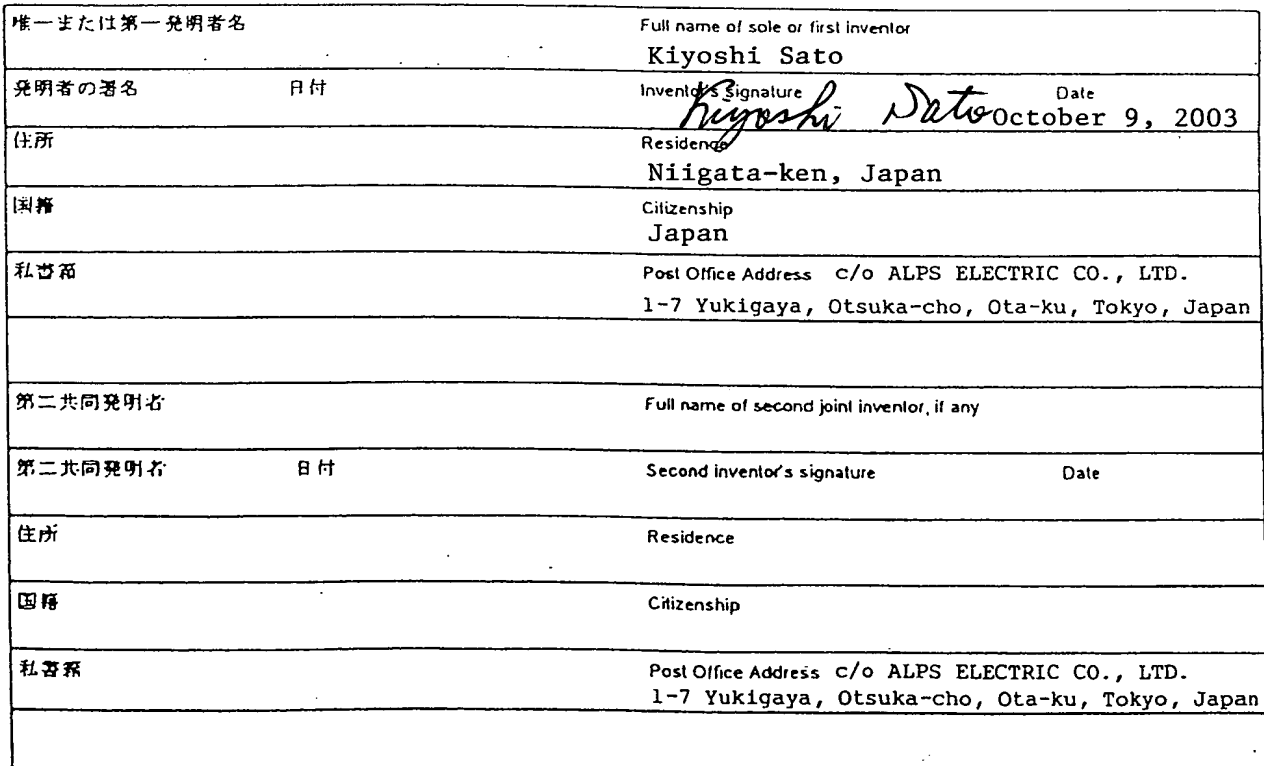 唯一または第一発明者名
Full name of sole or first inventor
Kiyoshi Sato
発明者の署名 日付
Inventor's signature Date
Kiyoshi Sato October 9, 2003
住所
Residence
Niigata-ken, Japan
国籍
Citizenship
Japan
私書箱
Post Office Address c/o ALPS ELECTRIC CO., LTD.
1-7 Yukigaya, Otsuka-cho, Ota-ku, Tokyo, Japan
第二共同発明者
Full name of second joint inventor, if any
第二共同発明者 日付
Second inventor's signature Date
住所
Residence
国籍
Citizenship
私書箱
Post Office Address c/o ALPS ELECTRIC CO., LTD.
1-7 Yukigaya, Otsuka-cho, Ota-ku, Tokyo, Japan